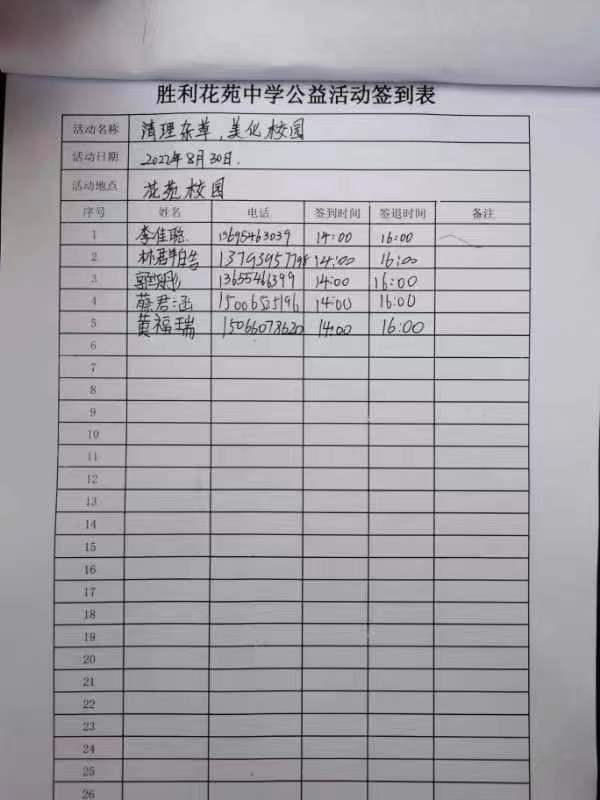 胜利花苑中学公益活动签到表
活动名称 清理杂草,美化校园
活动日期 2022年8月30日.
活动地点 花苑校园
序号 姓名 电话 签到时间 签退时间 备注
1 李佳聪 13695463039 14:00 16:00
2 林君 13793957798 14:00 16:00
3 13655466399 14:00 16:00
4 薛君涵 15006525196 14:00 16:00
5 黄福瑞 15066073620 14:00 16:00
6
7
8
9
10
11
12
13
14
15
16
17
18
19
20
21
22
23
24
25
26